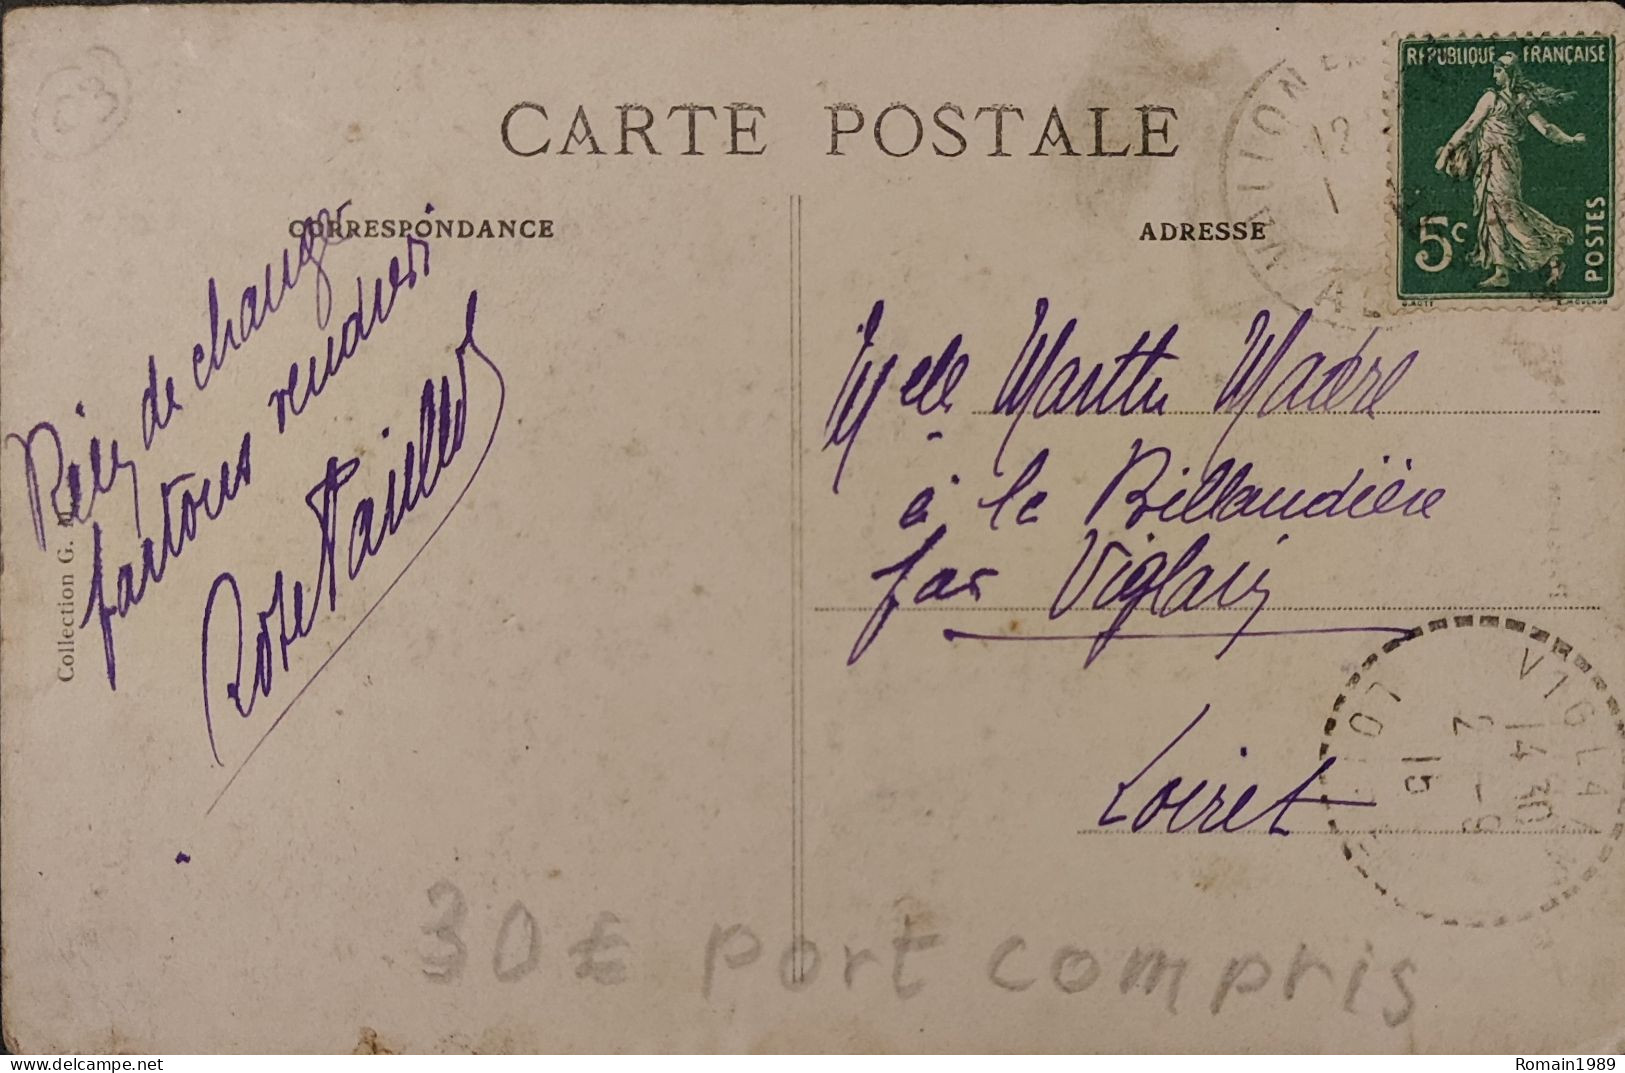 C3
CARTE POSTALE
CORRESPONDANCE
ADRESSE
REPUBLIQUE FRANÇAISE
5c
POSTES
Rien de change
partous vendredi
Rose
Collection G.
Melle Marthe Madre
à la Billaudière
par Viglain
Loiret
VIGLAI
14 30
2 - 9
15
LOI
30€ port compris
Romain1989